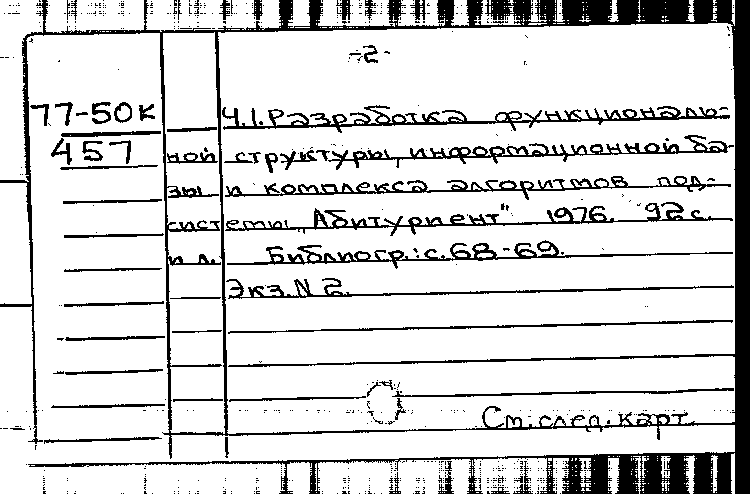 -2-
77-50к
457
Ч.1. Разработка функциональ-
ной структуры, информационной ба-
зы и комплекса алгоритмов под-
системы „Абитуриент" 1976. 92 с.
ил. Библиогр.: с. 68-69.
Экз. N 2.
См. след. карт.